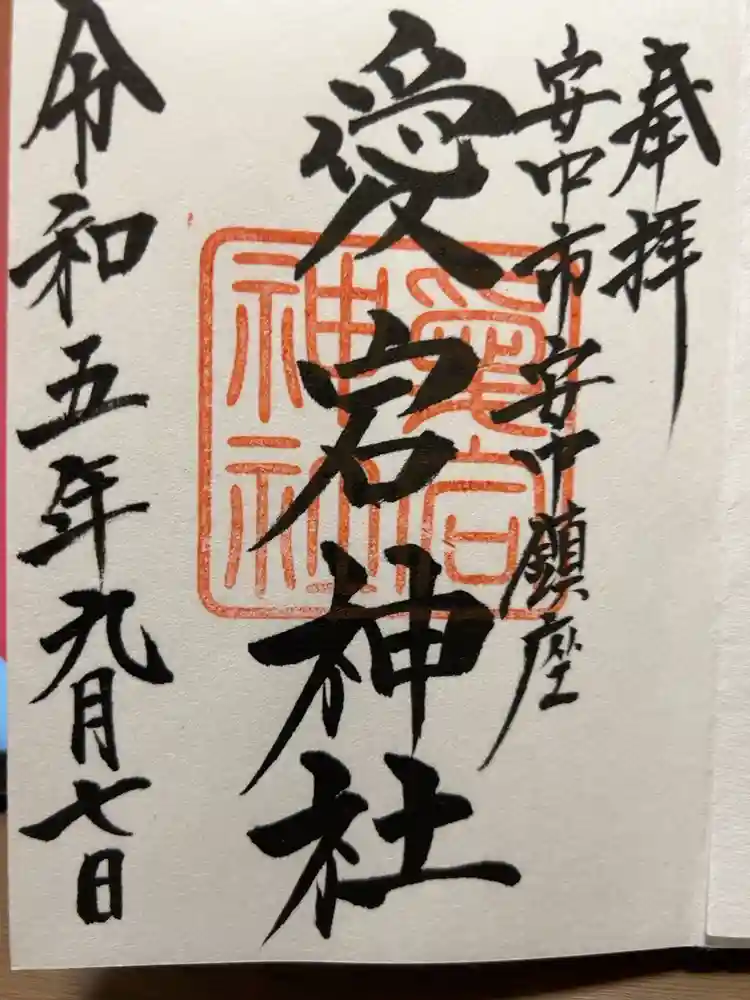 奉拝
安中市安中鎮座
愛宕神社
愛宕
神社
令和五年九月七日